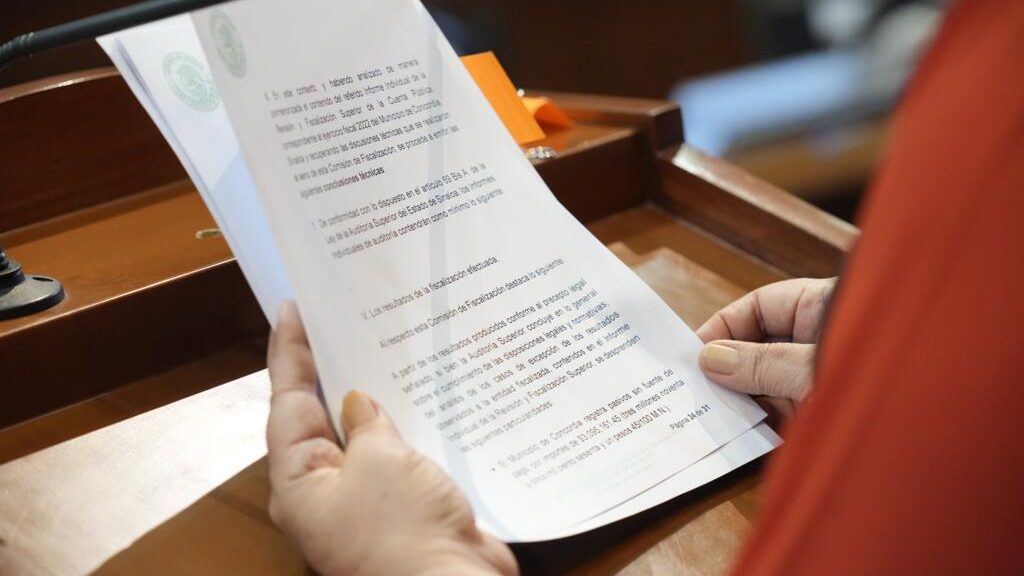 II. En este contexto, y habiendo analizado de manera
pormenorizada el contenido del referido Informe Individual de la
Revisión y Fiscalización Superior de la Cuenta Pública
correspondiente al ejercicio fiscal 2022 del Municipio de Concordia,
Sinaloa y recuperando las discusiones técnicas que se realizaron
al seno de esta Comisión de Fiscalización, se procede a emitir las
siguientes conclusiones técnicas:
De conformidad con lo dispuesto en el artículo 69 Bis A, de la
Ley de la Auditoría Superior del Estado de Sinaloa, los informes
individuales de auditoría contendrán como mínimo lo siguiente:
V. Los resultados de la fiscalización efectuada:
Al respecto esta Comisión de Fiscalización destaca lo siguiente:
A partir de los resultados producidos conforme al precepto legal
señalado, si bien la Auditoría Superior concluye en lo general
sobre el cumplimiento de las disposiciones legales y normativas,
del análisis de los casos de excepción de los resultados
observados a la entidad fiscalizada, contenidos en el informe
individual de Revisión y Fiscalización Superior, se desprenden
las siguientes particularidades:
• El Municipio de Concordia registra pasivos sin fuente de
pago por importes de $3,095,161.45 (tres millones noventa
y cinco mil ciento sesenta y un pesos 45/100 M.N.)
Página 24 de 31